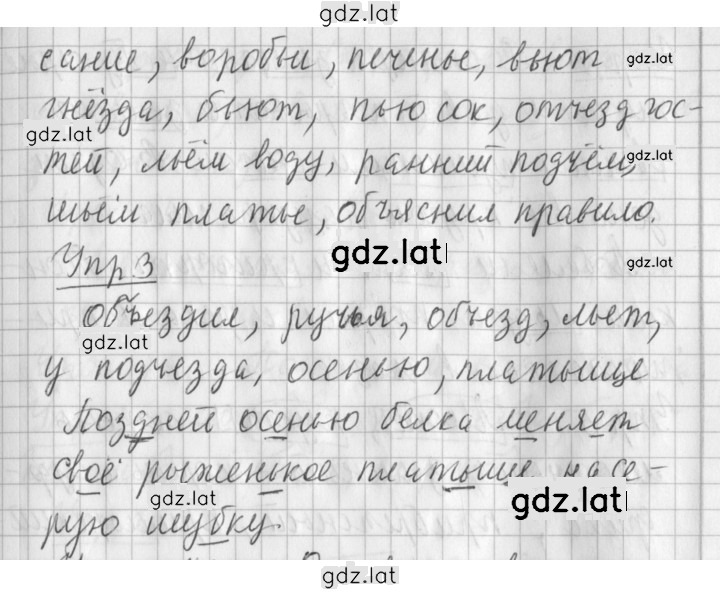 gdz.lat
сание, воробьи, печенье, вьют
gdz.lat
гнёзда, бьют, пью сок, отъезд гос-
gdz.lat
тей, льём воду, ранний подъём,
gdz.lat
шьём платье, объяснил правило.
gdz.lat
Упр 3
gdz.lat
объездил, ручья, объезд, льет,
gdz.lat
у подъезда, осенью, платьице
Поздней осенью белка меняет
своё рыженькое платьице на се-
gdz.lat
gdz.lat
рую шубку.
gdz.lat